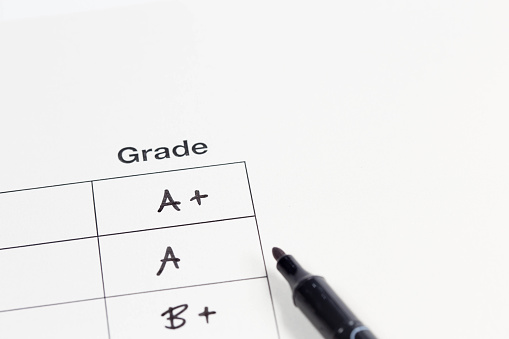 Grade
A+
A
B+